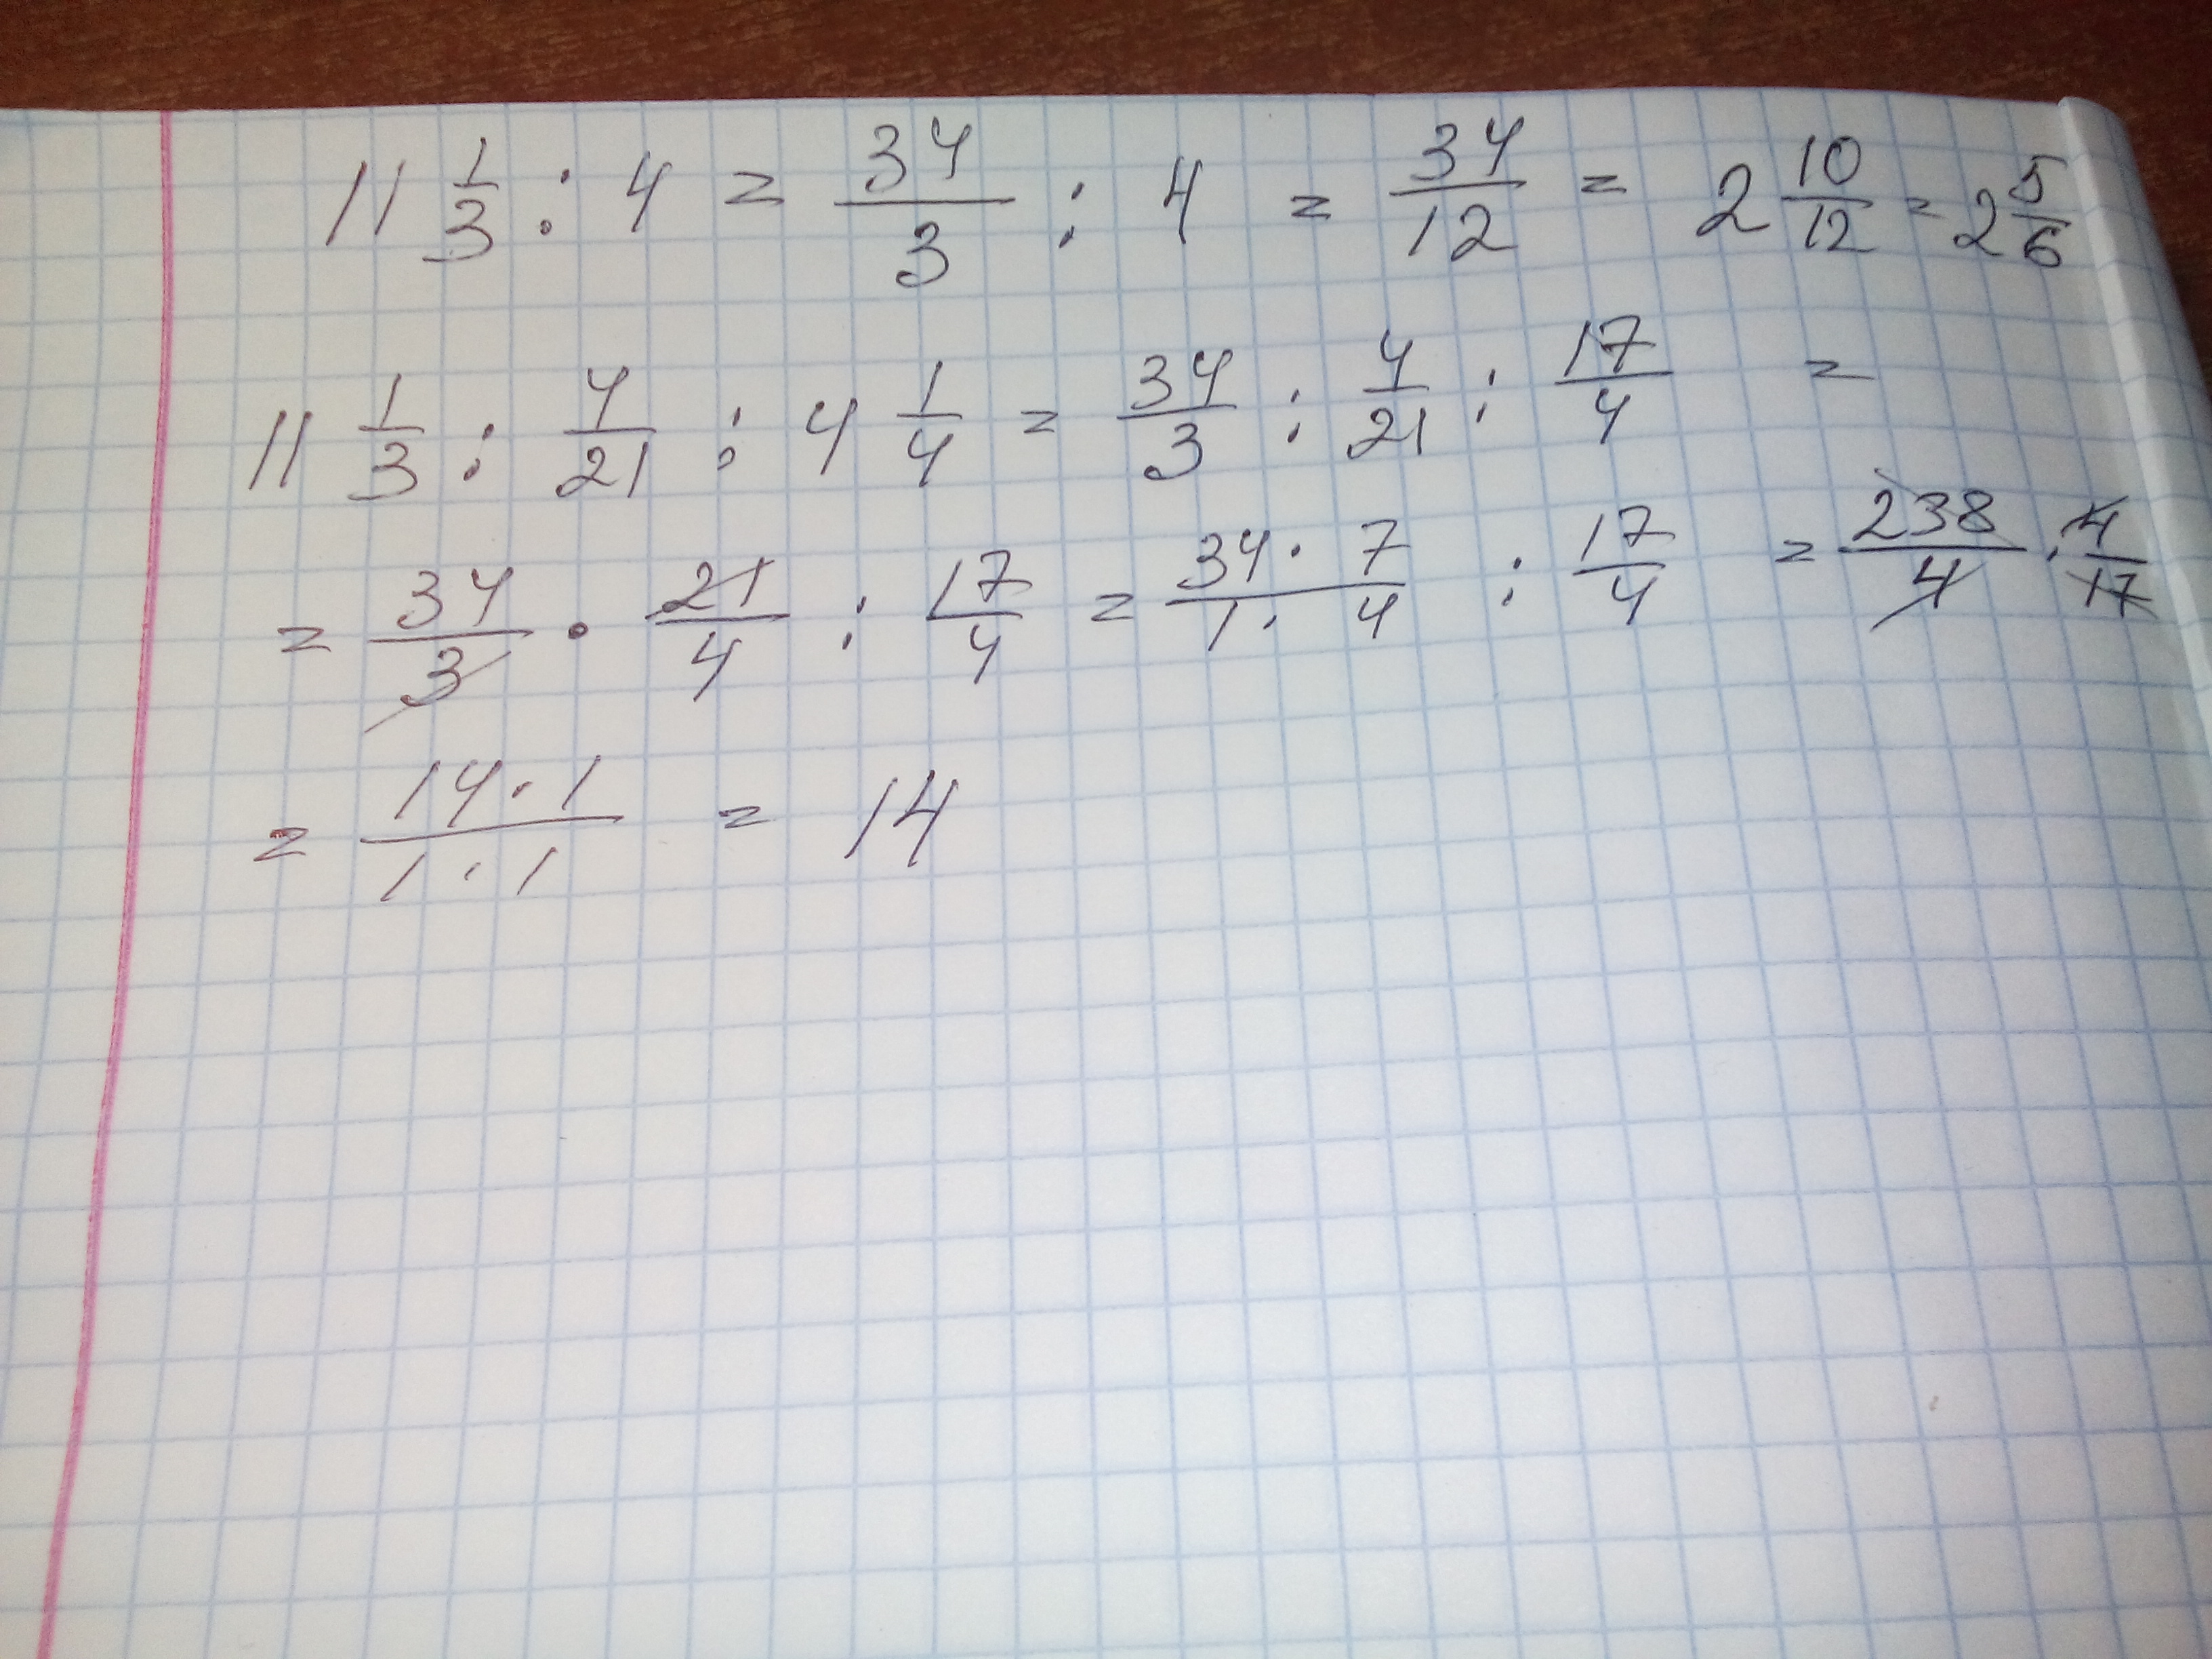 11 1/3 : 4 = 34/3 : 4 = 34/12 = 2 10/12 = 2 5/6
11 1/3 : 4/21 : 4 1/4 = 34/3 : 4/21 : 17/4 =
= 34/3 · 21/4 : 17/4 = 34 · 7/1 · 4 : 17/4 = 238/4 · 4/17
= 14 · 1/1 · 1 = 14